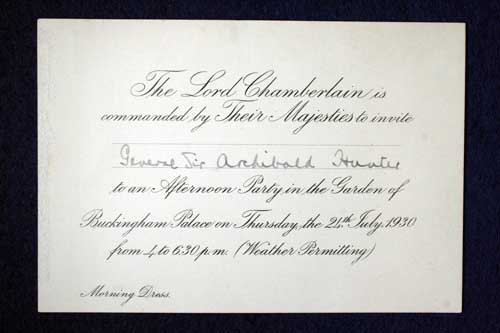 The Lord Chamberlain is
commanded by Their Majesties to invite
General Sir Archibald Hunter
to an Afternoon Party in the Garden of
Buckingham Palace on Thursday, the 24th July, 1930
from 4 to 6.30 p.m. (Weather Permitting)
Morning Dress.